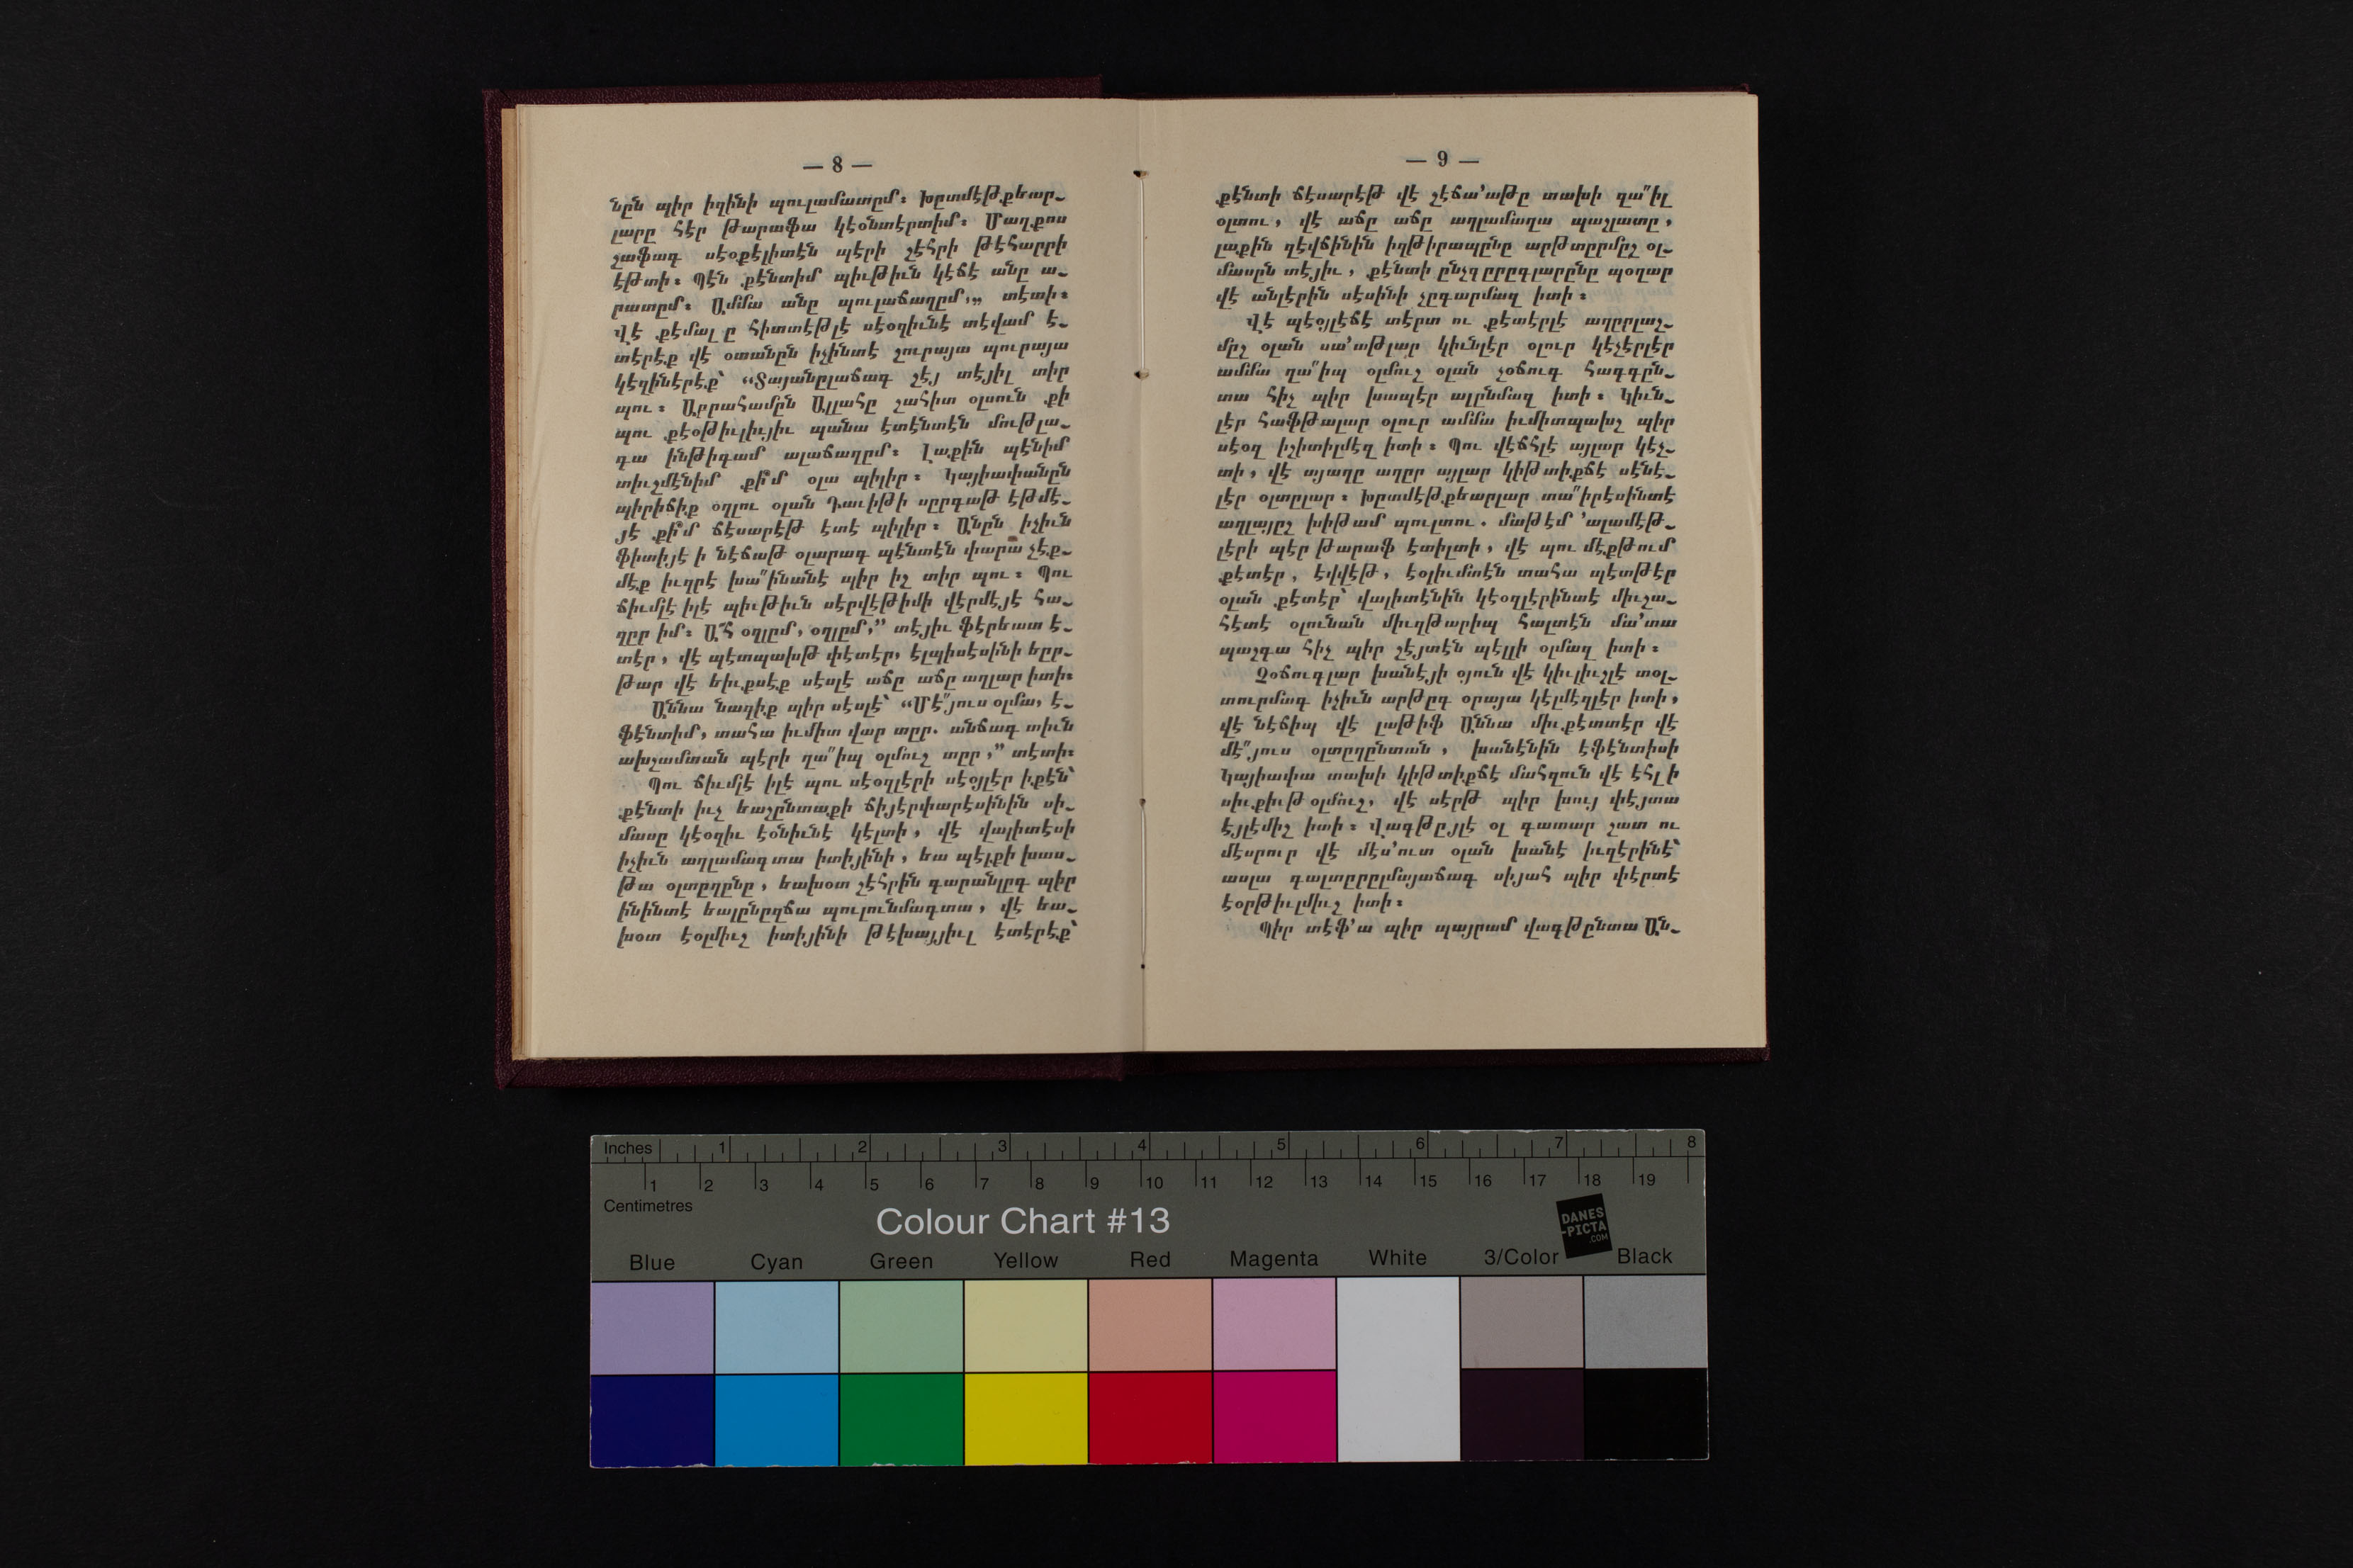 — 8 —
նըն պիր իզինի պուլամատըմ։ Խըտմէթքեար֊
լարը հէր թարաֆա կէօնտէրտիմ։ Մաղքոս
չաֆագ սէօքէլիտէն պէրի չէհրի թէհարրի
էթտի։ Պէն քէնտիմ պիւթիւն կէճէ անը ա֊
րատըմ։ Ամմա անը պուլաճաղըմ,,, տէտի։
Վէ քէմալ ը հիտտէթլէ սէօզիւնէ տէվամ է֊
տէրէք վէ օտանըն իչինտէ շուրայա պուրայա
կէզինէրէք՝ “Տայանըլաճագ շէյ տէյիլ տիր
պու։ Աբրահամըն Ալլահը շահիտ օլսուն քի
պու քէօթիւլիւյիւ պանա էտէնտէն մութլա֊
գա ինթիգամ ալաճաղըմ։ Լաքին պէնիմ
տիւշմէնիմ քիմ օլա պիլիր։ Կայիափանըն
պիրիճիք օղլու օլան Դաւիթի սըրգաթ էթմէ֊
յէ քիմ ճէսարէթ էտէ պիլիր։ Անըն իչիւն
ֆիտիյէ ի նէճաթ օլարագ պէնտէն փարա չէք֊
մէք իւզրէ խա՛՛ինանէ պիր իշ տիր պու։ Պու
ճիւմլէ իլէ պիւթիւն սէրվէթիմի վէրմէյէ հա֊
զըր իմ։ Ա՜հ օղլըմ, օղլըմ,” տէյիւ ֆէրեատ է֊
տէր, վէ պէտպախթ փէտէր, էլպիսէսինի եըր֊
թար վէ եիւքսէք սէսլէ աճը աճը աղլար իտի։
Աննա նազիք պիր սէսլէ՝ “Մէ՛՛յուս օլմա, է֊
ֆէնտիմ, տահա իւմիտ վար տըր. անճագ տիւն
ախշամտան պէրի ղա՛՛իպ օլմուշ տըր,” տէտի։
Պու ճիւմլէ իլէ պու սէօզլէրի սէօյլէր իքէն՝
քէնտի իւչ եաշընտաքի ճիյէրփարէսինին սի֊
մասը կէօզիւ էօնիւնէ կէլտի, վէ վալիտէսի
իչիւն աղլամագտա իտիյինի, եա պէլքի խաս֊
թա օլտըղընը, եախօտ շէհրին գարանլըգ պիր
ինինտէ եալընըզճա պուլունմագտա, վէ եա֊
խօտ էօլմիւշ իտիյինի թէխայյիւլ էտէրէք՝
— 9 —
քէնտի ճէսարէթ վէ շէճա’աթը տախի զա՛՛իլ
օլտու, վէ աճը աճը աղլամաղա պաշլատը,
լաքին զէվճինին իզթիրապընը արթտըրմըշ օլ֊
մասըն տէյիւ, քէնտի ընչզըրըգլարընը պօղար
վէ անլէրին սէսինի չըգարմազ իտի։
Վէ պէօյլէճէ տէրտ ու քէտէրլէ աղըրլաշ֊
մըշ օլան սա’աթլար կիւնլէր օլուր կէչէրլէր
ամմա ղա՛՛իպ օլմուշ օլան չօճուգ հագգըն֊
տա հիչ պիր խապէր ալընմազ իտի։ Կիւն֊
լէր հաֆթալար օլուր ամմա իւմիտպախշ պիր
սէօզ իշիտիլմէզ իտի։ Պու վէճհլէ այլար կէչ֊
տի, վէ այաղը աղըր այլար կիթտիքճէ սէնէ֊
լէր օլտըլար։ Խըտմէթքեարլար տա՛՛իրէսինտէ
աղլայըշ խիթամ պուլտու. մաթէմ ’ալամէթ֊
լէրի պէր թարաֆ էտիլտի, վէ պու մէքթում
քէտէր, էվվէթ, էօլիւմտէն տահա պէտթէր
օլան քէտէր՝ վալիտէնին կէօզլէրինտէ միւշա֊
հէտէ օլունան միւզթարիպ հալտէն մա’տա
պաշգա հիչ պիր շէյտէն պէլլի օլմազ իտի։
Չօճուգլար խանէյի օյուն վէ կիւլիւշլէ տօլ֊
տուրմագ իչիւն արթըգ օրայա կէլմէզլէր իտի,
վէ նէճիպ վէ լաթիֆ Աննա միւքէտտէր վէ
մէ՛՛յուս օլտըղընտան, խանէնին էֆէնտիսի
Կայիափա տախի կիթտիքճէ մահզուն վէ էհլի
սիւքիւթ օլմուշ, վէ սէրթ պիր խույ փէյտա
էյլէմիշ իտի։ Վագթըյլէ օլ գատար շատ ու
մէսրուր վէ մէս’ուտ օլան խանէ իւզէրինէ՝
ասլա գալտըրըլմայաճագ սիյահ պիր փէրտէ
էօրթիւլմիւշ իտի։
Պիր տէֆ’ա պիր պայրամ վագթընտա Ան֊
Inches 1 2 3 4 5 6 7 8
1 2 3 4 5 6 7 8 9 10 11 12 13 14 15 16 17 18 19
Centimetres
Colour Chart #13
DANES
-PICTA
.COM
Blue Cyan Green Yellow Red Magenta White 3/Color Black